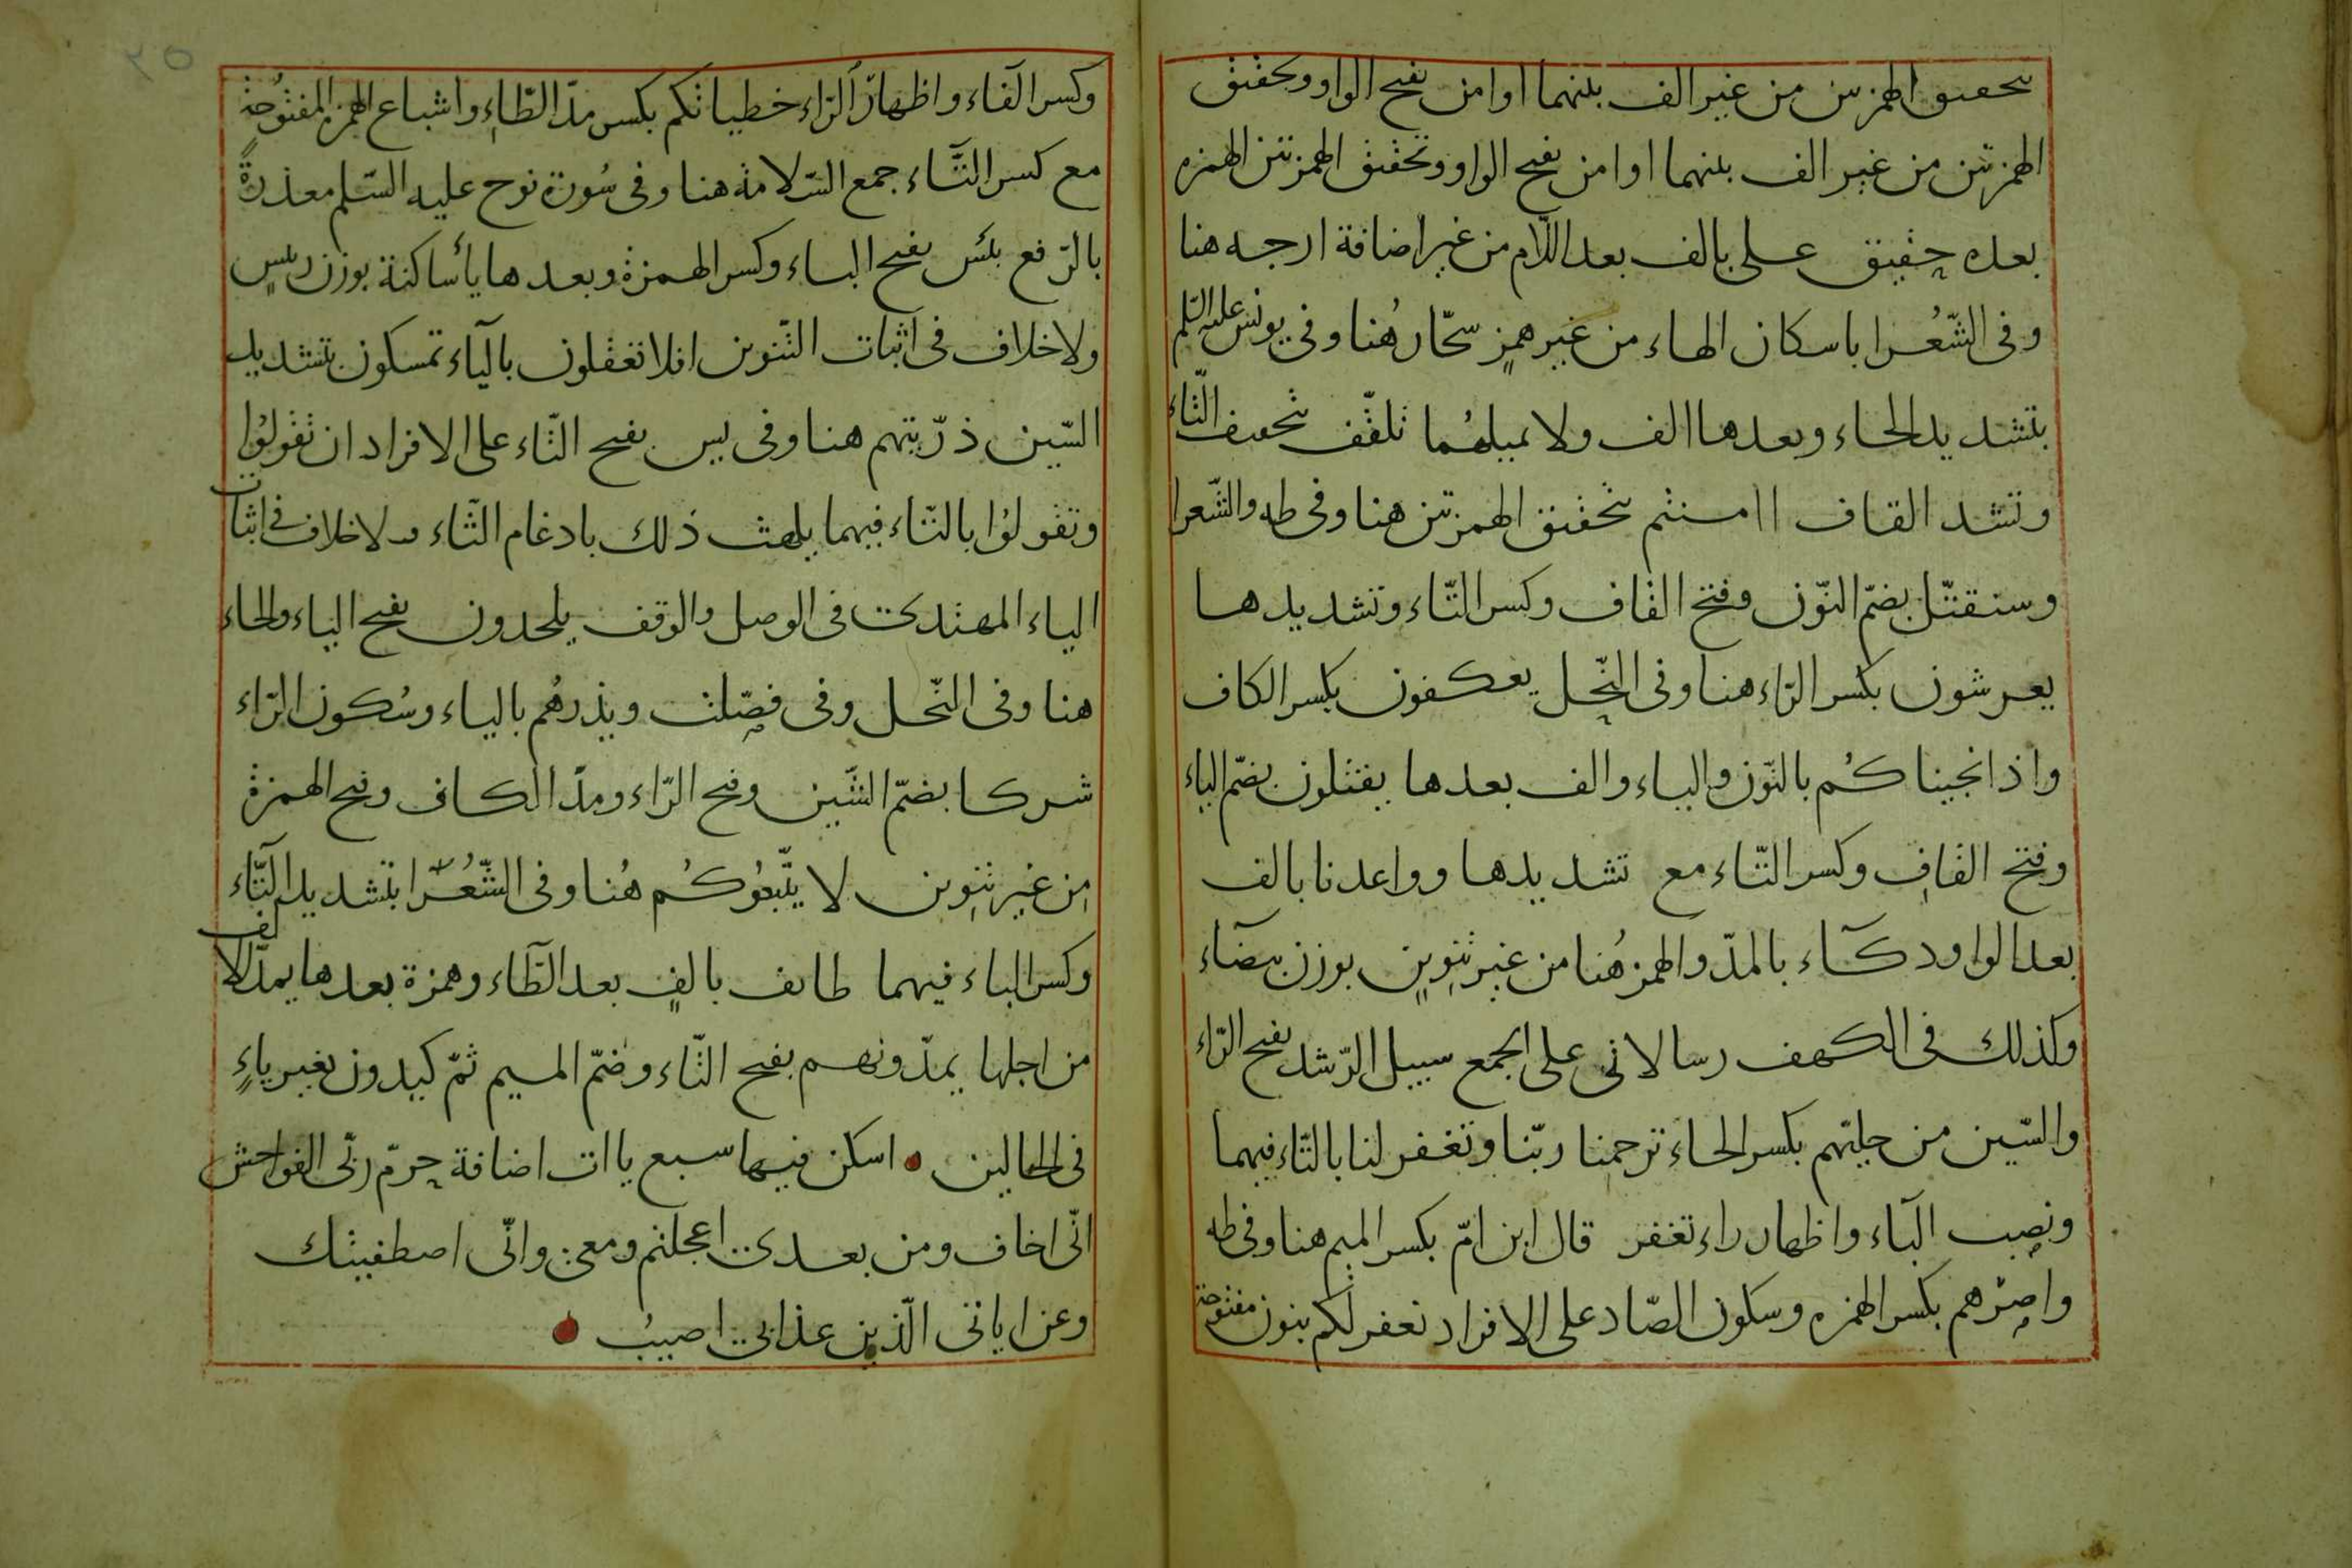 بتحقيق الهمزتين من غير الف بينهما اوامن بفتح الواو وتحقيق
الهمزتين من غير الف بينهما اوامن بفتح الواو وتحقيق الهمزتين الهمزه
بعده حقيق على بالف بعد اللّام من غير اضافة ارجه هنا
وفى الشّعُرا باسكان الهاء من غير همزٍ سحّار هُنا وفى يونس عليه السّلم
بتشديد الحاء وبعدها الف ولا يميلهُما تلقّف بتخفيف التّاء
وتشد القاف اامنتم بتحقيق الهمزتين هنا وفى طه والشّعرا
وسنقتّل بضمّ النّون وفتح القاف وكسر التّاء وتشديدها
يعرشون بكسر الرّاء هنا وفى النّحل يعكفون بكسر الكاف
واذ انجيناكُم بالنّون والياء والف بعدها يقتلون بضمّ الياء
وفتح القاف وكسر التّاء مع تشديدها وواعدنا بالف
بعد الواو دكّاء بالمدّ والهمز هُنا من غير تنوينٍ بوزن بيضآء
وكذلك فى الكهف رسالاتى على الجمع سبيل الرّشد بفتح الرّاء
والسّين من حليّهم بكسر الحاء ترحمنا ربّنا وتغفر لنا بالتّاء فيهما
ونصب البآء واظهار راء تغفر قال ابن امّ بكسر الميم هنا وفى طه
واصرهم بكسر الهمزه وسكون الصّاد على الافراد نغفر لكم بنون مفتوحة
وكسر الفآء واظهار الرّاء خطياتكم بكسر مدّ الطّاء واشباع الهمز المفتوحة
مع كسر التّاء جمع السّلامة هنا وفى سُورة نوح عليه السّلم معذرةً
بالرّفع بئس بفتح الباء وكسر الهمزة وبعدها يأ ساكنة بوزن رئيسٍ
ولا خلاف فى اثبات التّنوين افلا تعقلون بالتآء تمسكون بتشديد
السّين ذرّيتهم هنا وفى يس بفتح التّاء على الافراد ان تقولوُا
وتقولوُا بالتّاء فيهما يلهث ذلك بادغام الثّاء ولا خلاف فى اثبات
الياء المهتدى فى الوصل والوقف يلحدون بفتح الياء والحاء
هنا وفى النّحل وفى فصّلت ويذرهُم بالياء وسُكون الرّاء
شركا بضمّ الشّين وفتح الرّاء ومدّ الكاف وفتح الهمزة
مِن غير تنوين لا يتّبعُوكُم هُنا وفى الشّعُرا بتشديد التّاء
وكسر الباء فيهما طائف بالفٍ بعد الطّاء وهمزة بعدها يمدّ الالف
من اجلها يمدّونهم بفتح التّاء وضمّ الميم ثمّ كيدون بغير ياءٍ
فى الحالين اسكن فيها سبع يااات اضافة حرّم ربّى الفواحش
انّى اخاف ومن بعدى اعجلتم ومعى وانّى اصطفيتك
وعن اياتى الّذين عذابى اصيبُ